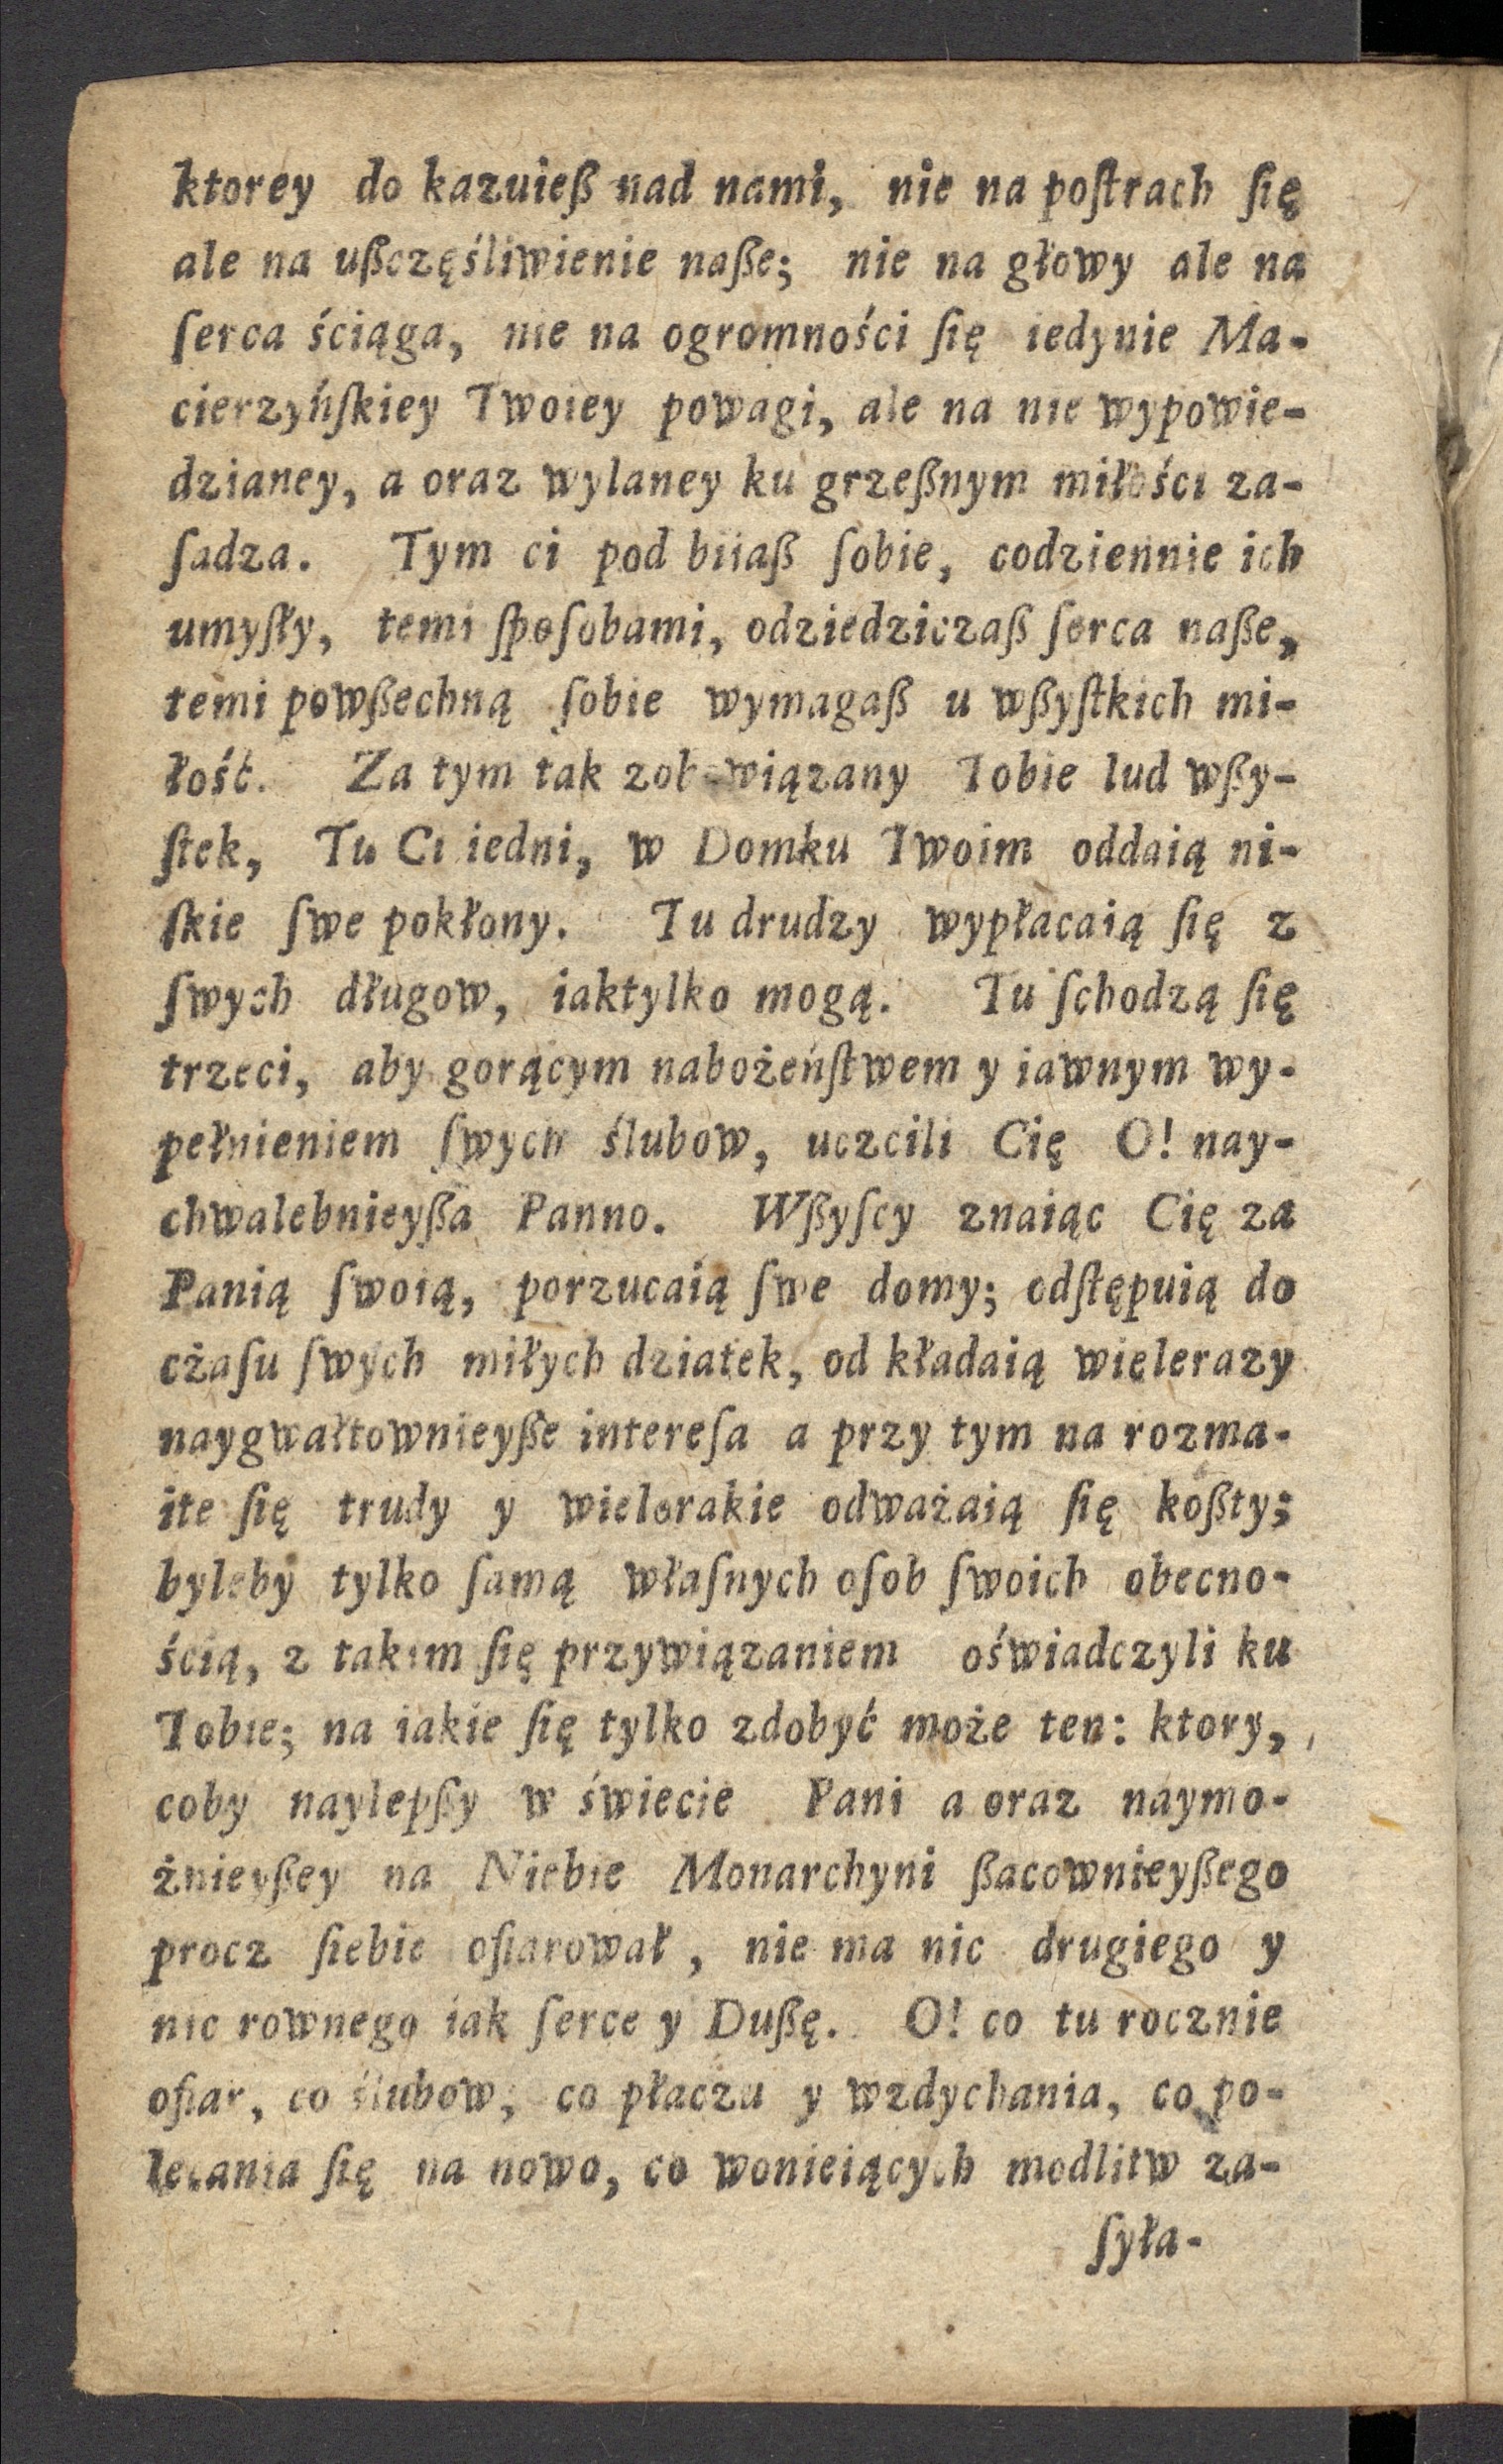 ktorey do kazuieß nad nami, nie na poſtrach ſię
ale na ußczęśliwienie naße; nie na głowy ale na
ſerca ściąga, nie na ogromności ſię iedynie Ma-
cierzyńſkiey Twoiey powagi, ale na nie wypowie-
dzianey, a oraz wylaney ku grzeßnym miłości za-
ſadza. Tym ci pod biiaß ſobie, codziennie ich
umyſły, temi ſpoſobami, odziedziczaß ſerca naße,
temi powßechną ſobie wymagaß u wßyſtkich mi-
łość. Za tym tak zobowiązany Tobie lud wßy-
ſtek, Tu Ci iedni, w Domku Twoim oddaią ni-
ſkie ſwe pokłony. Tu drudzy wypłacaią ſię z
ſwych długow, iaktylko mogą. Tu ſchodzą ſię
trzeci, aby gorącym nabożeńſtwem y iawnym wy-
pełnieniem ſwych ślubow, uczcili Cię O! nay-
chwalebnieyßa Panno. Wßyſcy znaiąc Cię za
Panią ſwoią, porzucaią ſwe domy; odſtępuią do
cżaſu ſwych miłych dziatek, od kładaią wielerazy
naygwałtownieyße intereſa a przy tym na rozma-
ite ſię trudy y wielorakie odważaią ſię koßty;
byleby tylko ſamą właſnych oſob ſwoich obecno-
ścią, z takim ſię przywiązaniem oświadczyli ku
Tobie; na iakie ſię tylko zdobyć może ten: ktory,
coby naylepßy w świecie Pani a oraz naymo-
żnieyßey na Niebie Monarchyni ßacownieyßego
procz ſiebie ofiarował, nie ma nic drugiego y
nic rownego iak ſerce y Dußę. O! co tu rocznie
ofiar, co ślubow, co płaczu y wzdychania, co po-
lecania ſię na nowo, co wonieiących modlitw za-
ſyła-